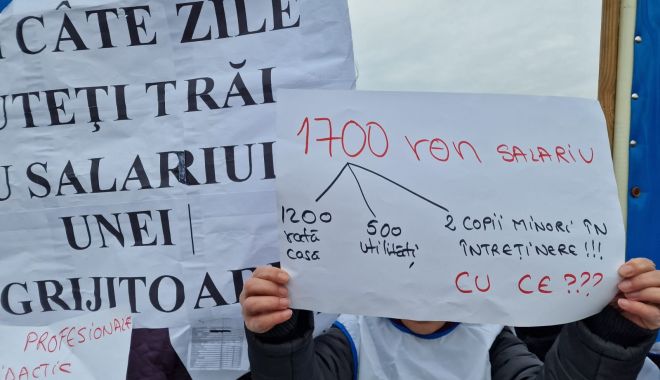 CÂTE ZILE
UTEȚI TRĂI
U SALARIUL
UNEI
GRIJITOARE
PROFESIONALE
DIDACTIC
1700 ron SALARIU
1200
rată
casa
500
utilități
2 COPII MINORI ÎN
ÎNTREȚINERE!!!
CU CE???